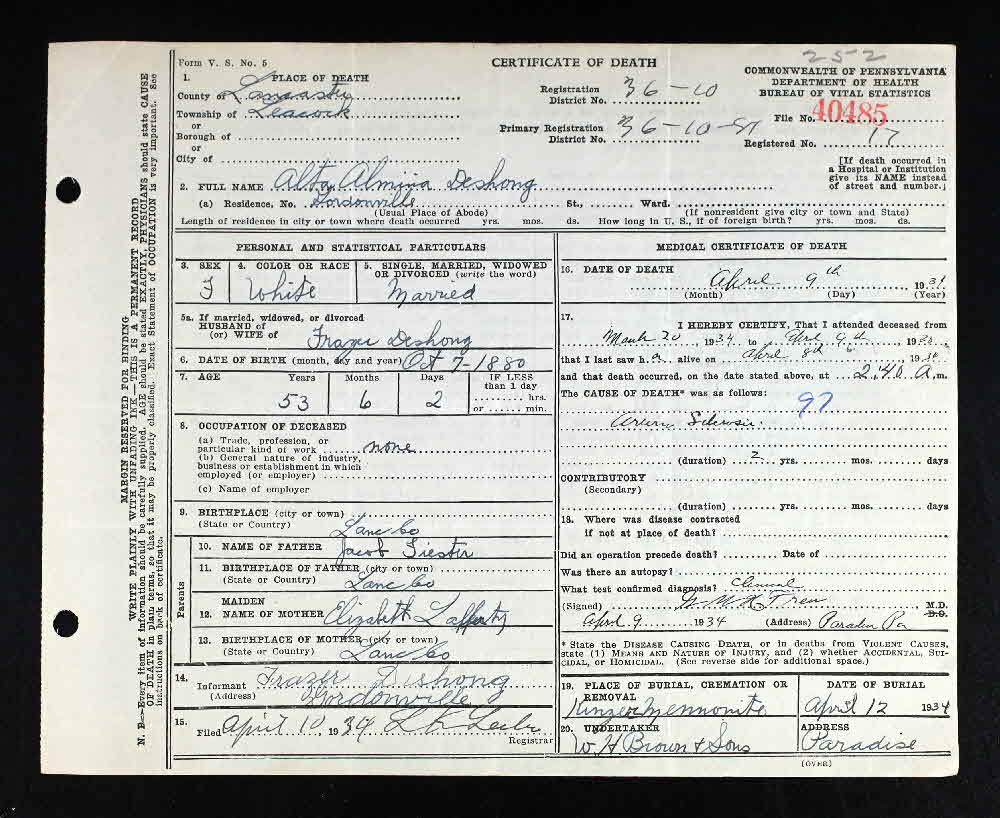 252
Form V. S. No. 5
CERTIFICATE OF DEATH
COMMONWEALTH OF PENNSYLVANIA
DEPARTMENT OF HEALTH
BUREAU OF VITAL STATISTICS
1. PLACE OF DEATH
County of Lancaster
Township of Leacock
or
Borough of
or
City of
Registration District No. 36-10
Primary Registration District No. 36-10-
File No. 40485
Registered No. 17
[If death occurred in a Hospital or Institution give its NAME instead of street and number.]
2. FULL NAME Alta Almina Deshong
(a) Residence, No. Gordonville St., Ward.
(Usual Place of Abode) (If nonresident give city or town and State)
Length of residence in city or town where death occurred yrs. mos. ds. How long in U. S., if of foreign birth? yrs. mos. ds.
PERSONAL AND STATISTICAL PARTICULARS
3. SEX F
4. COLOR OR RACE White
5. SINGLE, MARRIED, WIDOWED OR DIVORCED (write the word) Married
5a. If married, widowed, or divorced
HUSBAND of
(or) WIFE of Deshong
6. DATE OF BIRTH (month, day and year) Oct 7-1880
7. AGE Years Months Days IF LESS than 1 day
53 6 2 hrs. or min.
8. OCCUPATION OF DECEASED
(a) Trade, profession, or particular kind of work none
(b) General nature of industry, business or establishment in which employed (or employer)
(c) Name of employer
9. BIRTHPLACE (city or town)
(State or Country) Lanc Co
Parents
10. NAME OF FATHER Jacob
11. BIRTHPLACE OF FATHER (city or town)
(State or Country) Lanc Co
12. MAIDEN NAME OF MOTHER Elizabeth Lafferty
13. BIRTHPLACE OF MOTHER (city or town)
(State or Country) Lanc Co
14. Informant Frazer Deshong
(Address) Gordonville
15. Filed April 10 1934
Registrar
MEDICAL CERTIFICATE OF DEATH
16. DATE OF DEATH April 9th 1934
(Month) (Day) (Year)
17. I HEREBY CERTIFY, That I attended deceased from
March 20, 1934 to Apl 9th, 19
that I last saw h alive on April 8th, 19
and that death occurred, on the date stated above, at 2:40 A. m.
The CAUSE OF DEATH* was as follows: 97
Sclerosis
(duration) 2 yrs. mos. days
CONTRIBUTORY
(Secondary)
(duration) yrs. mos. days
18. Where was disease contracted
if not at place of death?
Did an operation precede death? Date of
Was there an autopsy?
What test confirmed diagnosis? Clinical
(Signed) M.D.
D.O.
April 9 1934 (Address) Paradise Pa
* State the DISEASE CAUSING DEATH, or in deaths from VIOLENT CAUSES, state (1) MEANS AND NATURE OF INJURY, and (2) whether ACCIDENTAL, SUICIDAL, or HOMICIDAL. (See reverse side for additional space.)
19. PLACE OF BURIAL, CREMATION OR REMOVAL
Kinzer Mennonite
DATE OF BURIAL
April 12 1934
20. UNDERTAKER
W H Brown & Sons
ADDRESS
Paradise
(OVER)
MARGIN RESERVED FOR BINDING
WRITE PLAINLY WITH UNFADING INK—THIS IS A PERMANENT RECORD
N. B.—Every item of information should be carefully supplied. AGE should be stated EXACTLY. PHYSICIANS should state CAUSE OF DEATH in plain terms, so that it may be properly classified. Exact Statement of OCCUPATION is very important. See instructions on back of certificate.